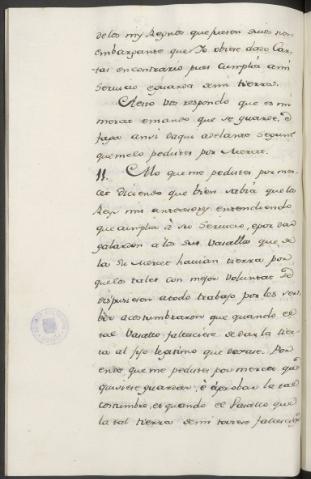 de los mis Reynos que fueron suos non
embargante que Yo obiere dado Car-
tas en contrario pues cumplia a mi
Servicio eguarda a mi tierra.
A esto vos respondo que es mi
merced emando que se guarde, e
faga ansi daqui adelante segun
que melo pedistes por Merced.
11. A lo que me pedistes por mer-
ced diciendo que bien sabia que los
Reys mis antecesores entendiendo
que cumplia à su Servicio, e por dar
galardon a los sus Vasallos que de
la su Merced havian tierra por
que los tales con mejor Voluntad se
dispusieran atodo trabajo por los ser-
bir acostumbraron que quando el
tal Vasallo falleciere de dar la tier-
ra al fijo legitimo que dexare. Por
ende que me pedistes por merced que
quisiese guardar, è aprobar la tal
costumbre, et quando el Vasallo que
la tal tierra de mi toviere falleciese